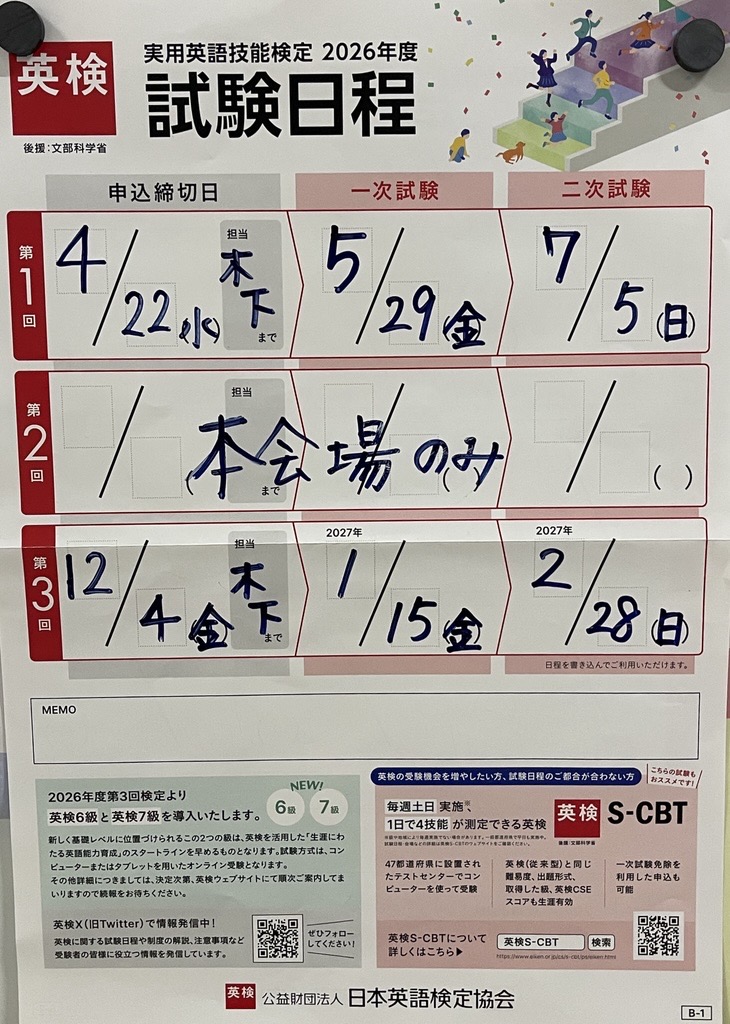 英検
後援:文部科学省
実用英語技能検定 2026年度
試験日程
申込締切日 一次試験 二次試験
第1回
4/22(水)
担当
木下
まで
5/29(金)
7/5(日)
第2回
/
担当
( まで
/
( )
/
( )
本会場のみ
第3回
12/4(金)
担当
木下
まで
2027年
1/15(金)
2027年
2/28(日)
日程を書き込んでご利用いただけます。
MEMO
2026年度第3回検定より
英検6級と英検7級を導入いたします。
NEW!
6級 7級
新しく基礎レベルに位置づけられるこの2つの級は、英検を活用した「生涯にわ
たる英語能力育成」のスタートラインを早めるものとなります。試験方式は、コン
ピューターまたはタブレットを用いたオンライン受験となります。
その他詳細につきましては、決定次第、英検ウェブサイトにて順次ご案内してま
いりますので続報をお待ちください。
英検X(旧Twitter)で情報発信中!
英検に関する試験日程や制度の解説、注意事項など
受験者の皆様に役立つ情報を発信しています。
ぜひフォロー
してください!
英検の受験機会を増やしたい方、試験日程のご都合が合わない方
こちらの試験も
おススメです!
毎週土日 実施、※
1日で4技能 が測定できる英検
英検 S-CBT
後援:文部科学省
47都道府県に設置され
たテストセンターでコン
ピューターを使って受験
英検(従来型)と同じ
難易度、出題形式、
取得した級、英検CSE
スコアも生涯有効
一次試験免除を
利用した申込も
可能
英検S-CBTについて
詳しくはこちら▶
英検S-CBT 検索
https://www.eiken.or.jp/cs/s-cbt/ps/eiken.html
英検 公益財団法人 日本英語検定協会
B-1